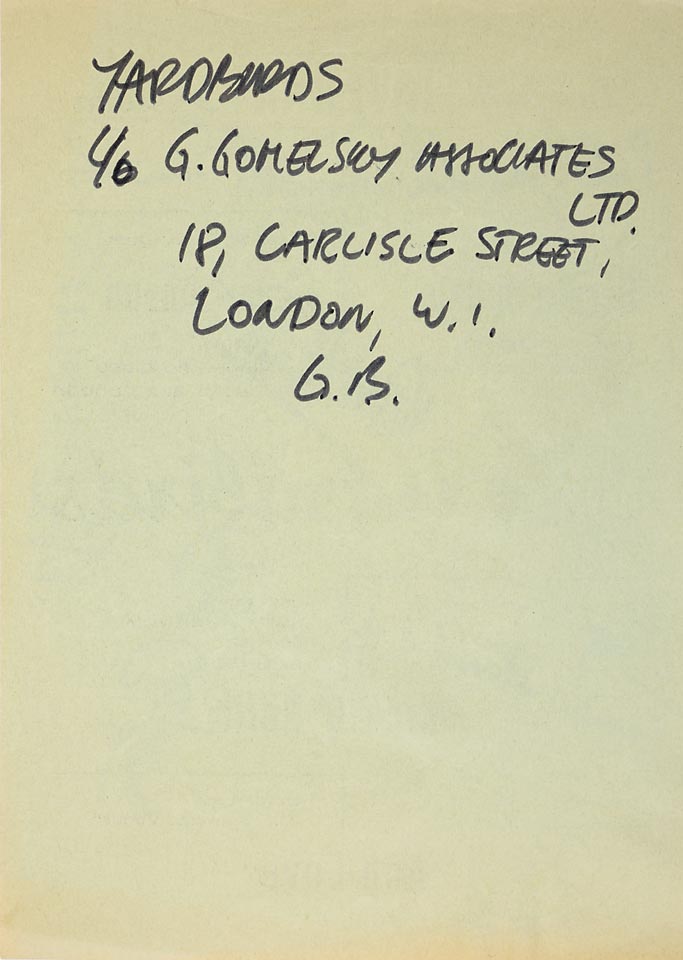 YARDBIRDS
C/o G. GOMELSKY ASSOCIATES
LTD.
18, CARLISLE STREET,
LONDON, W.1.
G.B.